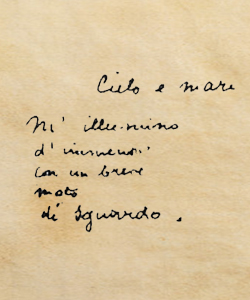 Cielo e mare
M' illumino
d' immenso
con un breve
moto
di sguardo.